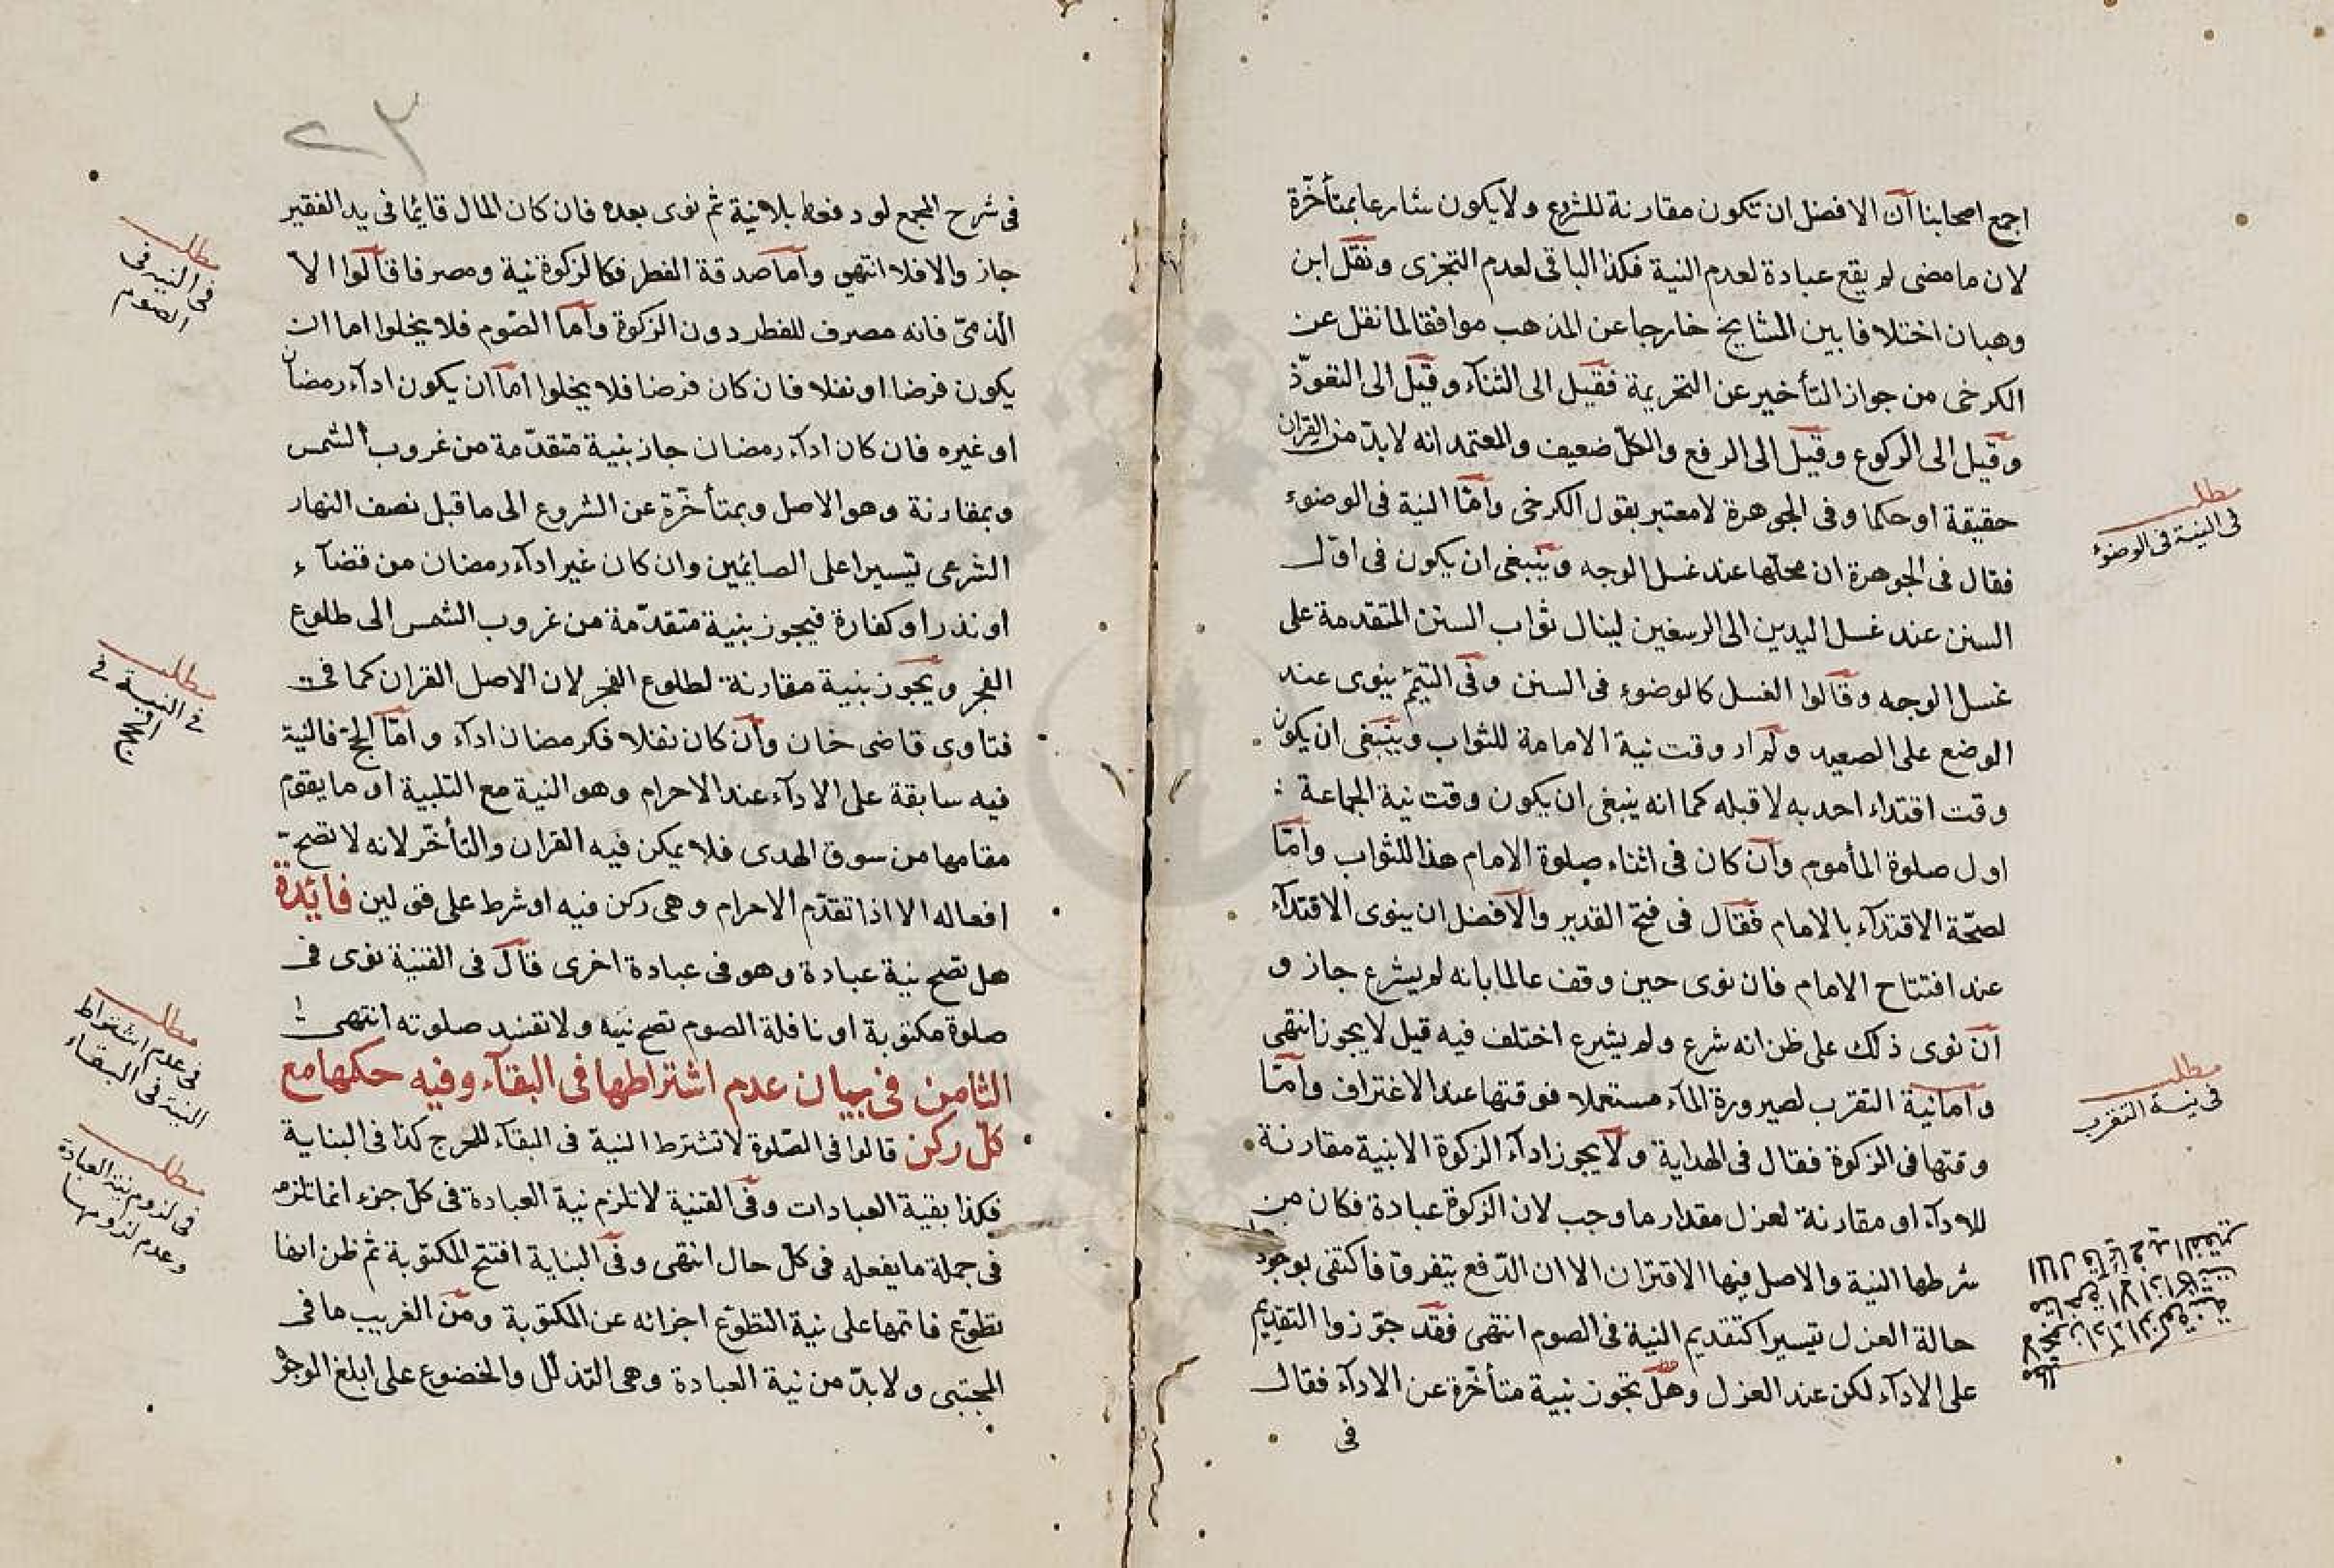 اجمع اصحابنا ان الافضل ان تكون مقارنة للشروع ولا يكون شارعا بمتأخرة
لان ما مضى لم يقع عبادة لعدم النية فكذا الباقى لعدم التجزى ونقل ابن
وهبان اختلافا بين المشايخ خارجا عن المذهب موافقا لما نقل عن
الكرخى من جواز التأخير عن التحريمة فقيل الى الثناء وقيل الى التعوذ
وقيل الى الركوع وقيل الى الرفع والكل ضعيف والمعتمد انه لا بد من القران
حقيقة او حكما وفى الجوهرة لا معتبر بقول الكرخى واما النية فى الوضوء
فقال فى الجوهرة ان محلها عند غسل الوجه وينبغى ان يكون فى اول
السنن عند غسل اليدين الى الرسغين لينال ثواب السنن المتقدمة على
غسل الوجه وقالوا الغسل كالوضوء فى السنن وفى التيمم ينوى عند
الوضع على الصعيد ولم ار وقت نية الامامة للثواب وينبغى ان يكون
وقت اقتداء احد به لا قبله كما انه ينبغى ان يكون وقت نية الجماعة
اول صلوة المأموم وان كان فى اثناء صلوة الامام هذا للثواب واما
لصحة الاقتداء بالامام فقال فى فتح القدير والافضل ان ينوى الاقتداء
عند افتتاح الامام فان نوى حين وقف عالما بانه لم يشرع جاز و
ان نوى ذلك على ظن انه شرع ولم يشرع اختلف فيه قيل لا يجوز انتهى
واما نية التقرب لصيرورة الماء مستعملا فوقتها عند الاغتراف واما
وقتها فى الزكوة فقال فى الهداية ولا يجوز اداء الزكوة الا بنية مقارنة
للاداء او مقارنة لعزل مقدار ما وجب لان الزكوة عبادة فكان من
شرطها النية والاصل فيها الاقتران الا ان الدفع يتفرق فاكتفى بوجود
حالة العزل تيسيرا كتقديم النية فى الصوم انتهى فقد جوزوا التقديم
على الاداء لكن عند العزل وهل تجوز بنية متأخرة عن الاداء فقال
فى
مطلب
فى النية فى الوضوء
مطلب
فى نية التقرب
٢٣
فى شرح المجمع لو دفعها بلا نية ثم نوى بعده فان كان المال قايما فى يد الفقير
جاز والا فلا انتهى واما صدقة الفطر فكالزكوة نية ومصرفا قالوا الا
الذمى فانه مصرف للفطر دون الزكوة واما الصوم فلا يخلوا اما ان
يكون فرضا او نفلا فان كان فرضا فلا يخلوا اما ان يكون اداء رمضان
او غيره فان كان اداء رمضان جاز بنية متقدمة من غروب الشمس
وبمقارنة وهو الاصل وبمتأخرة عن الشروع الى ما قبل نصف النهار
الشرعى تيسيرا على الصايمين وان كان غير اداء رمضان من قضاء
او نذر او كفارة فيجوز بنية متقدمة من غروب الشمس الى طلوع
الفجر ويجوز بنية مقارنة لطلوع الفجر لان الاصل القران كما فى
فتاوى قاضى خان وان كان نفلا فكرمضان اداء واما الحج فالنية
فيه سابقة على الاداء عند الاحرام وهو النية مع التلبية او ما يقوم
مقامها من سوق الهدى فلا يمكن فيه القران والتأخر لانه لا تصح
افعاله الا اذا تقدم الاحرام وهى ركن فيه او شرط على قولين فايدة
هل تصح نية عبادة وهو فى عبادة اخرى قال فى القنية نوى فى
صلوة مكتوبة او نافلة الصوم تصح نيته ولا تفسد صلوته انتهى
الثامن فى بيان عدم اشتراطها فى البقاء وفيه حكمها مع
كل ركن قالوا فى الصلوة لا تشترط النية فى البقاء للحرج كذا فى البناية
فكذا بقية العبادات وفى القنية لا تلزم نية العبادة فى كل جزء انما تلزمه
فى جملة ما يفعله فى كل حال انتهى وفى البناية افتتح المكتوبة ثم ظن انها
تطوع فاتمها على نية التطوع اجزائه عن المكتوبة ومن الغريب ما فى
المجتبى ولا بد من نية العبادة وهى التذلل والخضوع على ابلغ الوجوه
مطلب
فى النية فى
الصوم
مطلب
فى النية فى
الحج
مطلب
فى عدم اشتراط
النية فى البقاء
مطلب
فى لزوم نية العبادة
وعدم لزومها